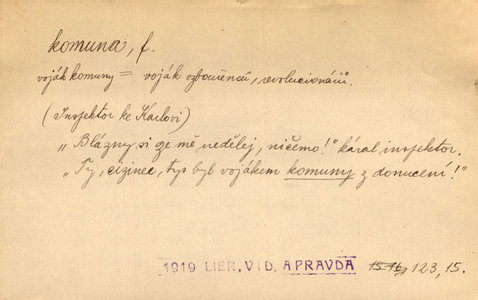 komuna, f.
voják komuny = voják vzbouřenců, revolucionářů.
(Inspektor ke Karlovi)
„Blázny si ze mě nedělej, ničemo!" káral inspektor.
„Ty, cizinec, tys byl vojákem komuny z donucení!"
1919 LIER, VID. A PRAVDA 123, 15.